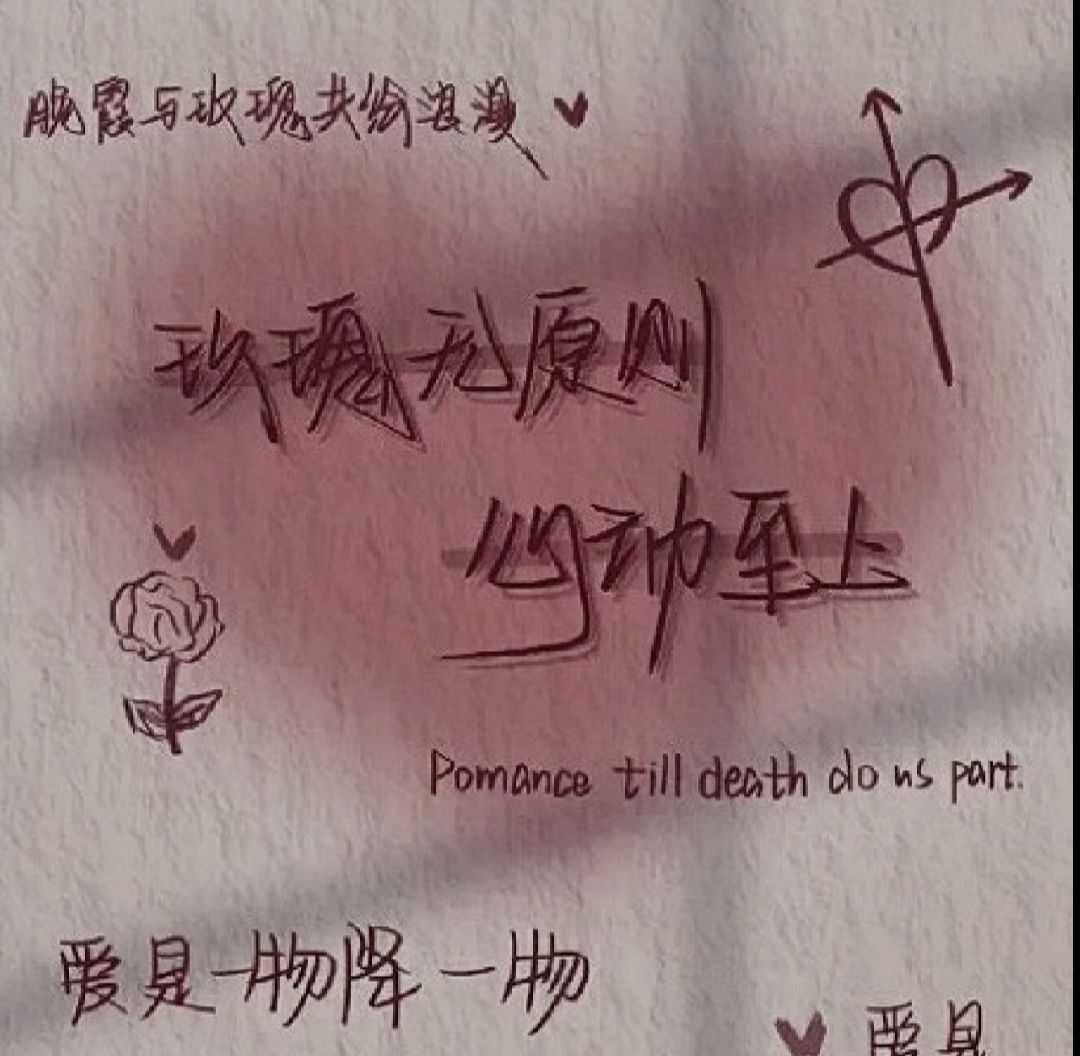 晚霞与玫瑰共绘浪漫
玫瑰无原则
心动至上
Romance till death do us part.
爱是一物降一物
爱是